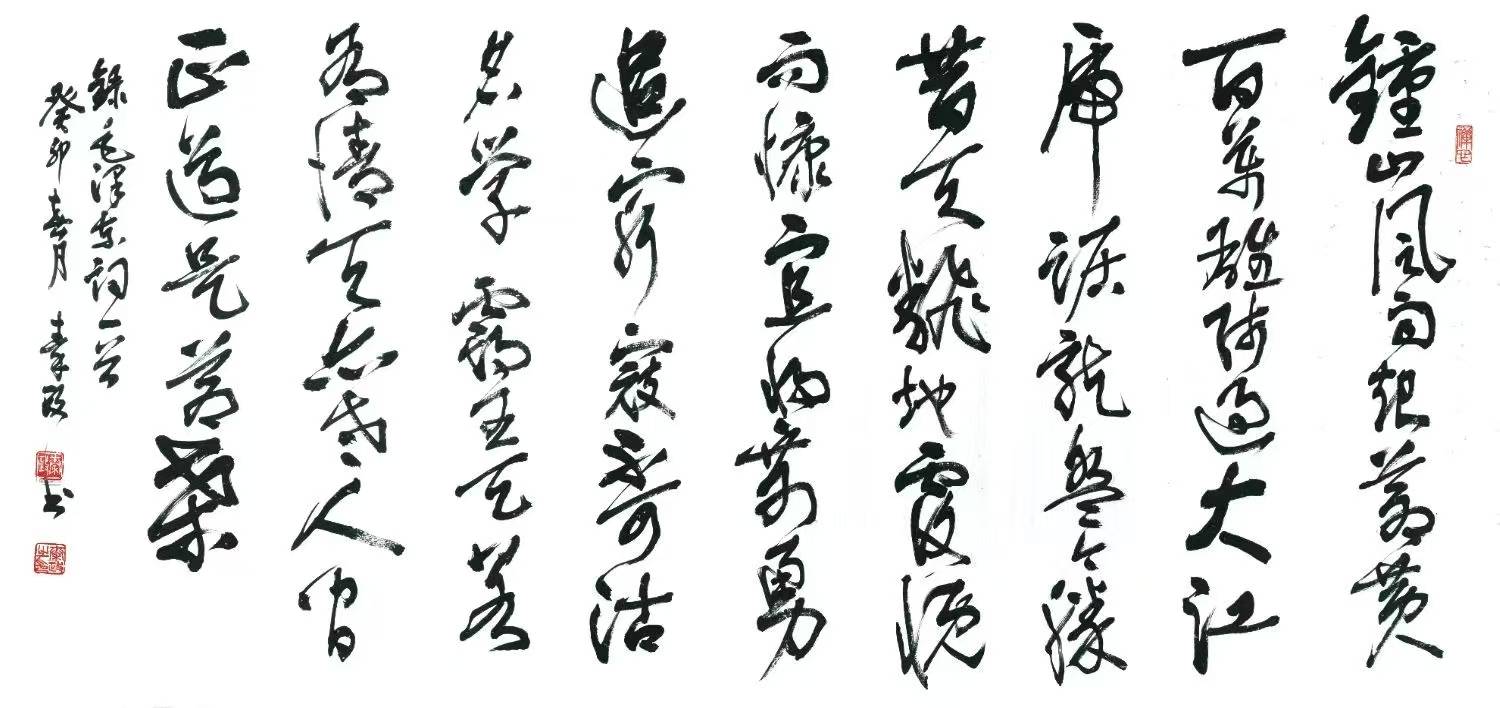 鍾山風雨起蒼黃
百萬雄師過大江
虎踞龍盤今勝
昔天翻地覆慨
而慷宜將剩勇
追窮寇不可沽
名学霸王天若
有情天亦老人间
正道是滄桑
錄毛澤東詞一首
癸卯春月 书